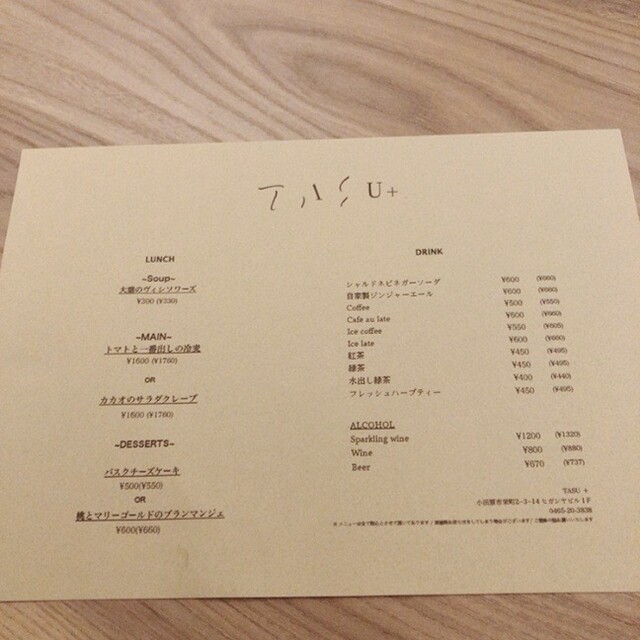 TASU+
LUNCH
~Soup~
大麦のヴィシソワーズ
¥300 (¥330)
~MAIN~
トマトと一番出しの冷麦
¥1600 (¥1760)
OR
カカオのサラダクレープ
¥1600 (¥1760)
~DESSERTS~
バスクチーズケーキ
¥500(¥550)
OR
桃とマリーゴールドのブランマンジェ
¥600(¥660)
DRINK
シャルドネビネガーソーダ ¥600 (¥660)
自家製ジンジャーエール ¥600 (¥660)
Coffee ¥500 (¥550)
Cafe au late ¥600 (¥660)
Ice coffee ¥550 (¥605)
Ice late ¥600 (¥660)
紅茶 ¥450 (¥495)
緑茶 ¥450 (¥495)
水出し緑茶 ¥400 (¥440)
フレッシュハーブティー ¥450 (¥495)
ALCOHOL
Sparkling wine ¥1200 (¥1320)
Wine ¥800 (¥880)
Beer ¥670 (¥737)
TASU +
小田原市栄町2-3-14 ヒガシヤビル1F
0465-20-3838